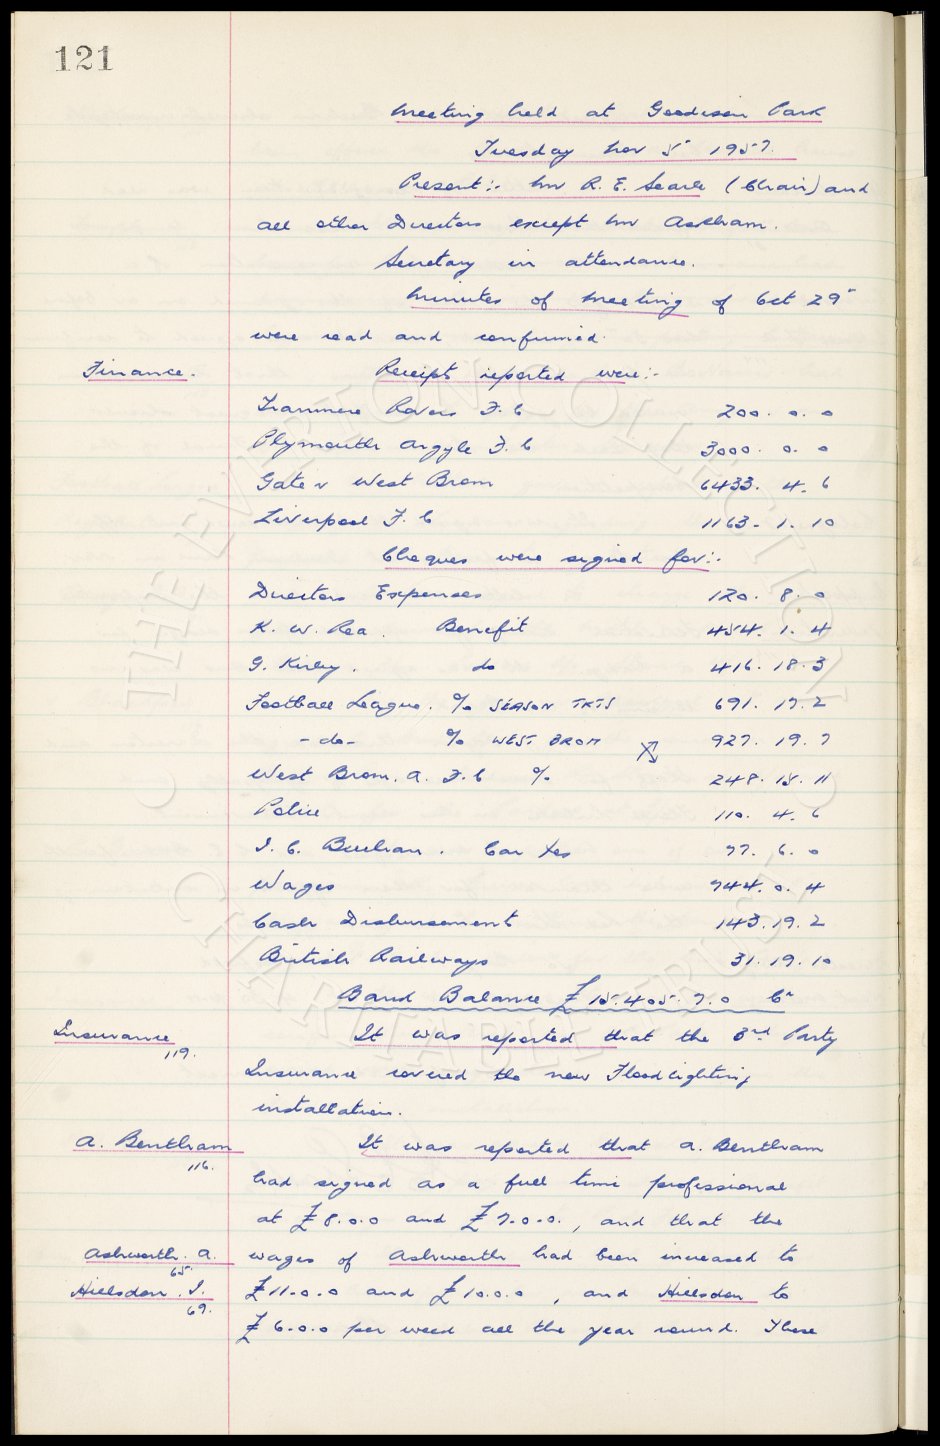 121
Meeting held at Goodison Park
Tuesday Nov 5" 1957.
Present:- Mr R. E. Searle (Chair) and
all other Directors except Mr Askham.
Secretary in attendance.
Minutes of Meeting of Oct 29"
were read and confirmed.
Finance. Receipts reported were:-
Tranmere Rovers F.C 200. 0. 0
Plymouth Argyle F.C 3000. 0. 0
Gate v West Brom 6433. 4. 6
Liverpool F.C 1163. 1. 10
Cheques were signed for:-
Directors Expenses 120. 8. 0
K. W. Rea. Benefit 454. 1. 4
G. Kirby. do 416. 18. 3
Football League. % SEASON TKTS 691. 17. 2
- do - % WEST BROM 927. 19. 7
West Brom. A. F.C % 248. 15. 11
Police 110. 4. 6
I. C. Buchan. Car tes 77. 6. 0
Wages 744. 0. 4
Cash Disbursement 143. 19. 2
British Railways 31. 19. 10
Band Balance £15.405. 7. 0 Cr
Insurance It was reported that the 3rd Party
119.
Insurance covered the new Floodlighting
installation.
A. Bentham It was reported that A. Bentham
116.
had signed as a full time professional
at £8.0.0 and £7.0.0., and that the
Ashworth. A. wages of Ashworth had been increased to
65.
Hillsdon. I. £11.0.0 and £10.0.0, and Hillsdon to
69.
£6.0.0 per week all the year round. These
THE EVERTON COLLECTION
CHARITABLE TRUST